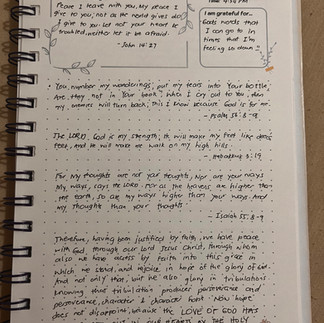 Peace I leave with you, My peace I
give to you; not as the world gives do
I give to you. Let not your heart be
troubled, neither let it be afraid.
- John 14:27
Time 9:36 PM
I am grateful for...
God's words that
I can go to in
times that I'm
feeling so down :)
You number my wanderings; put my tears into Your bottle;
Are they not in Your book; when I cry out to You, then
my enemies will turn back; This I know because God is for me.
- Psalm 56:8-9
The LORD God is my strength; He will make my feet like deer's
feet, And He will make me walk on my high hills.
- Habakkuk 3:19
For My thoughts are not your thoughts, Nor are your ways
My ways, says the LORD. For as the heavens are higher than
the earth, so are My ways higher than your ways, And
My thoughts than your thoughts.
- Isaiah 55:8-9
Therefore, having been justified by faith, we have peace
with God through our Lord Jesus Christ, through whom
also we have access by faith into this grace in
which we stand, and rejoice in hope of the glory of God.
And not only that, but we also glory in tribulations,
knowing that tribulation produces perseverance and
perseverance, character & character hope. Now hope
does not disappoint, because the LOVE OF GOD HAS
IN OUR HEARTS BY THE HOLY